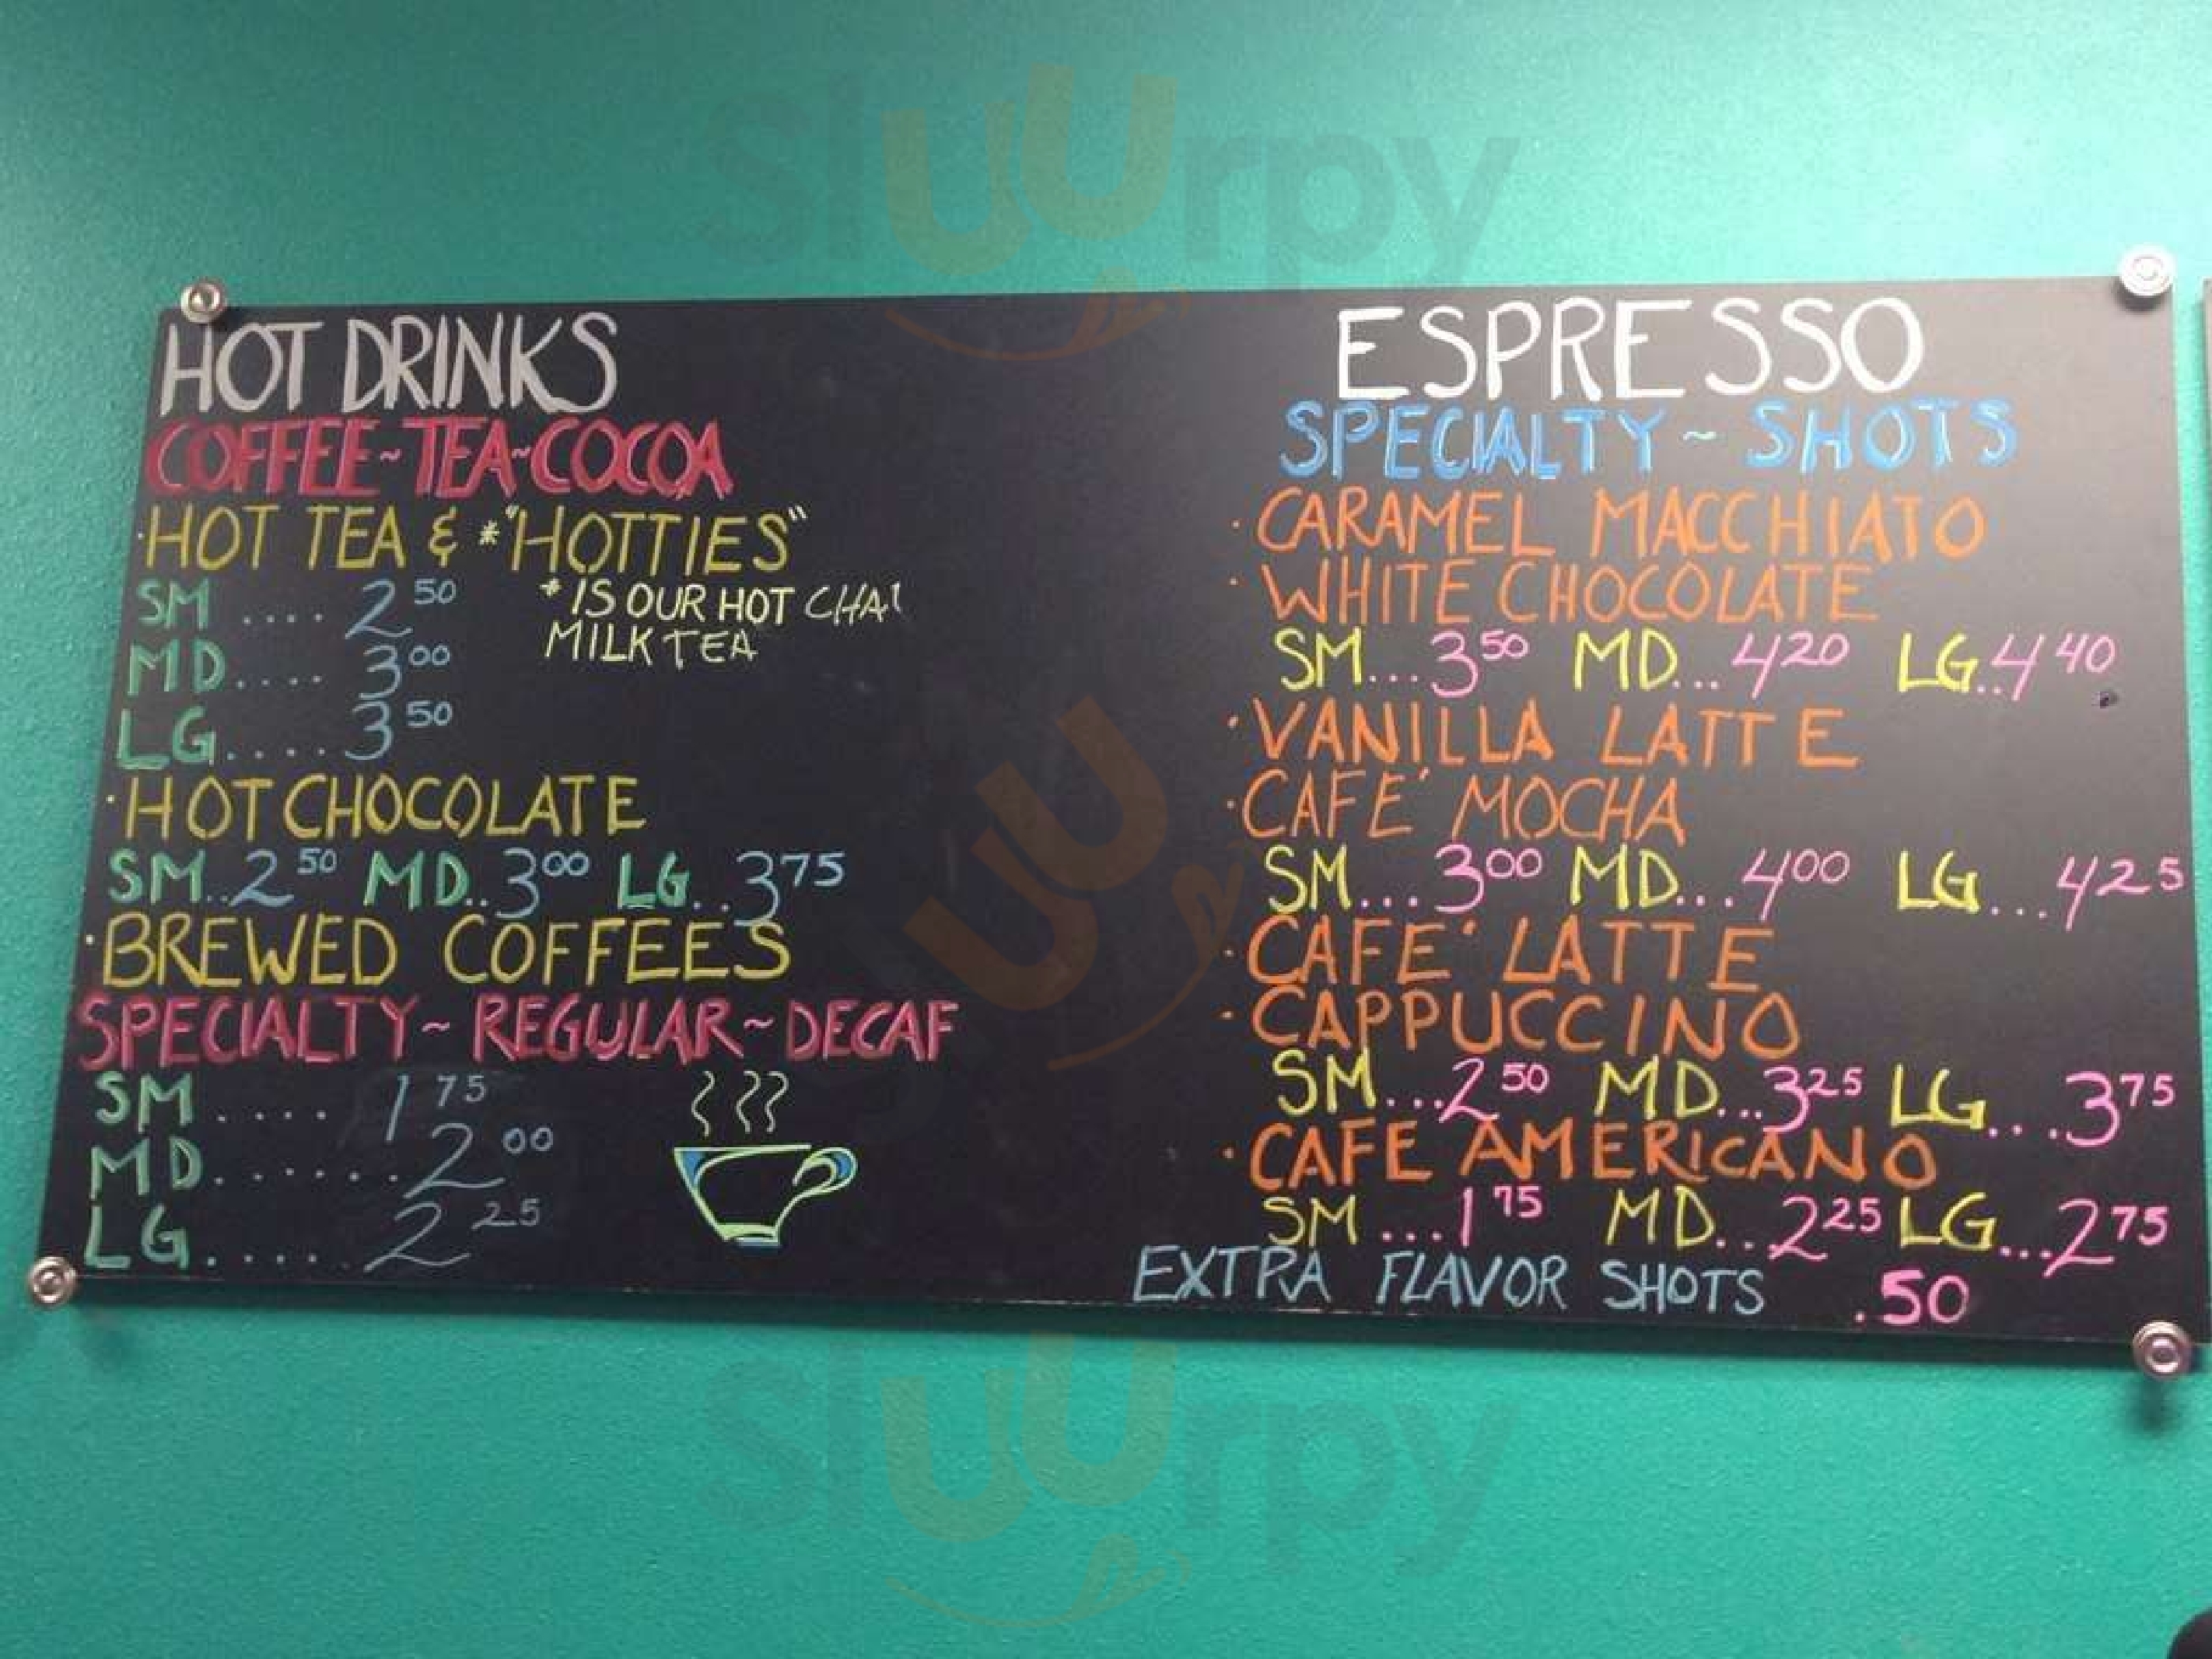 sluurpy
HOT DRINKS
COFFEE~TEA~COCOA
·HOT TEA & *"HOTTIES"
SM .... 2 50
* IS OUR HOT CHAI
MILK TEA
MD.... 3 00
LG.... 3 50
·HOT CHOCOLATE
SM..2 50 MD..3 00 LG..3 75
·BREWED COFFEES
SPECIALTY~REGULAR~DECAF
SM .... 1 75
MD......2 00
LG..... 2 25
ESPRESSO
SPECIALTY ~ SHOTS
·CARAMEL MACCHIATO
·WHITE CHOCOLATE
SM...3 50 MD...4 20 LG..4 40
·VANILLA LATTE
·CAFE' MOCHA
SM...3 00 MD...4 00 LG...4 25
·CAFE' LATTE
·CAPPUCCINO
SM...2 50 MD...3 25 LG...3 75
·CAFE AMERICANO
SM...1 75 MD..2 25 LG...2 75
EXTRA FLAVOR SHOTS .50
sluurpy